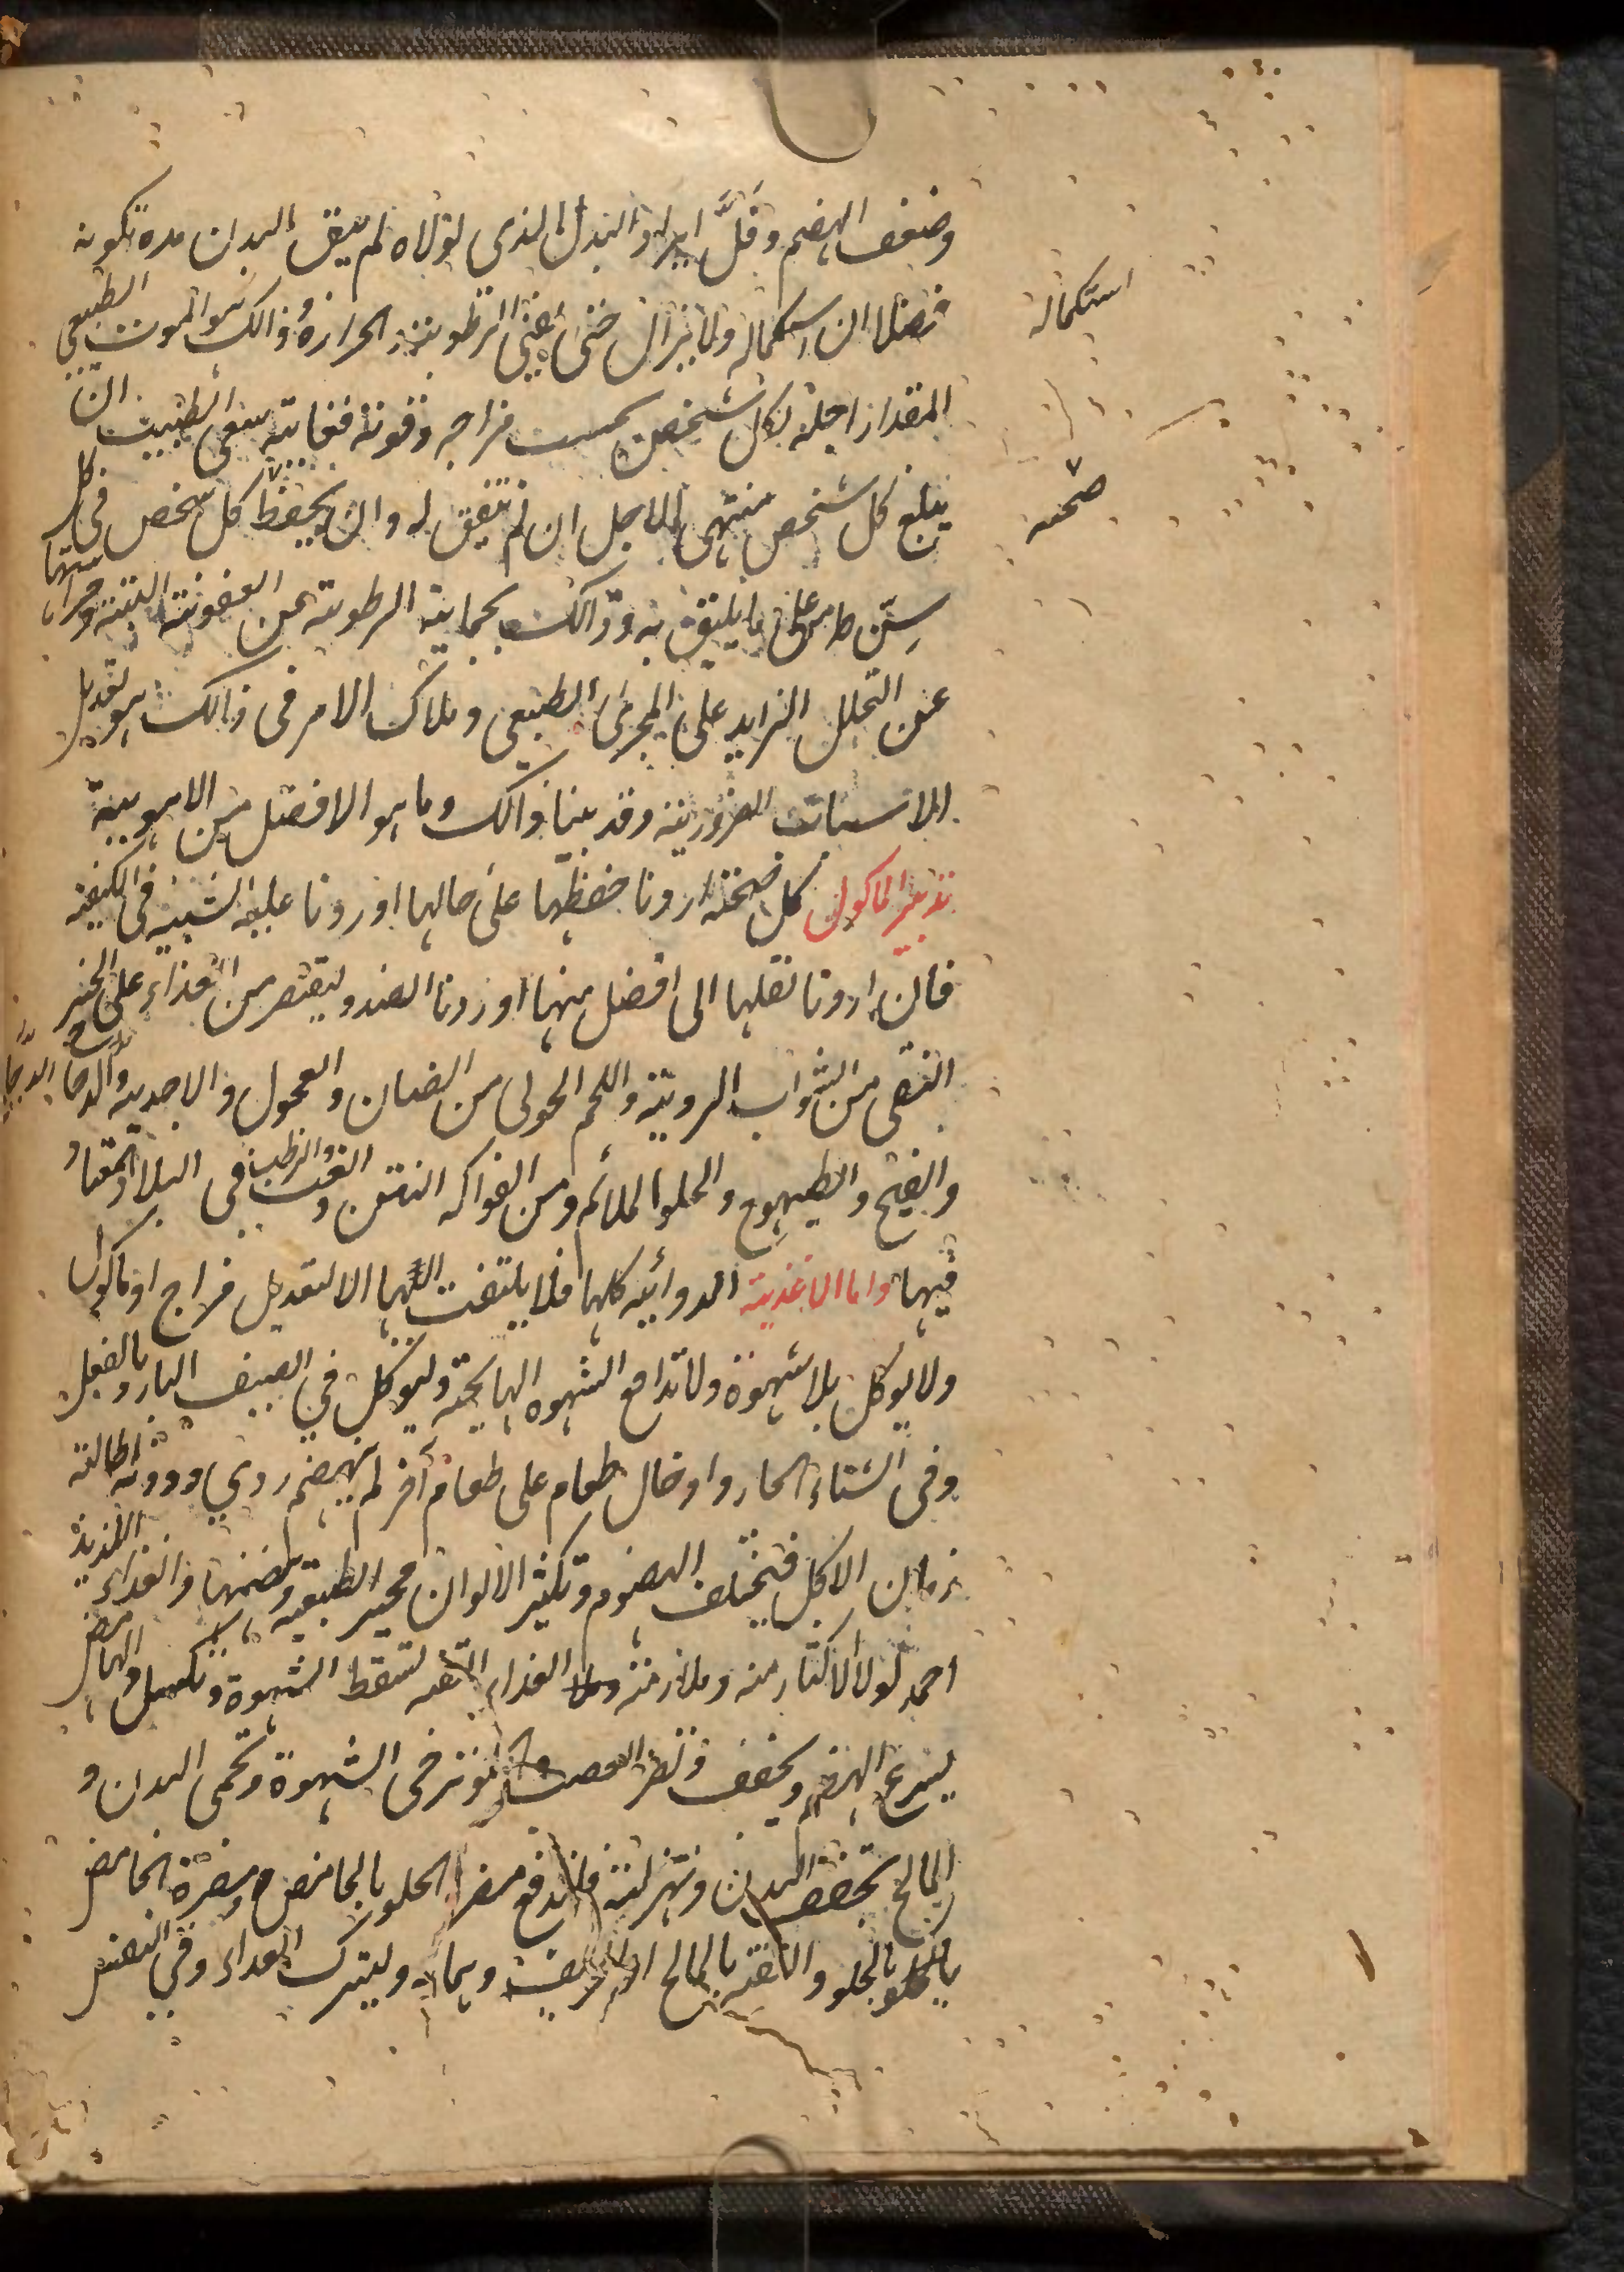 وضعف الهضم وقلَّ ايراد البدل الذى لولاه لم يبق البدن مده تكونه
فضلا ان استكماله ولا يزال حتى يفنى الرطوبة والحرارة وذالك هو الموت الطبيعى
استكماله
المقدار اجله لكل شخص بحسب مزاجه وقوته فغاية سعى الطبيب ان
يبلغ كل شخص منتهى الاجل ان لم يتفق له وان يحفظ كل شخص فى كل
صحته
سِنّ على ما يليق به وذالك بحماية الرطوبة عن العفونة البتة وحراستها
عن التحلل الزايد على المجرى الطبيعى وملاك الامر فى ذالك هو تعديل
الاسباب الضرورية وقد بينا ذالك وما هو الافضل من الاهوية
تدبير الماكول كل صحة اردنا حفظها على حالها اوردنا عليه الشبيه فى الكيفية
فان اردنا نقلها الى افضل منها اوردنا الضد وليقتصر من الغذاء على الخبز
النقى من الشواب الردية واللحم الحولى من الضان والعجول والاجدية والدجاج
والقبح والطيهوج والحلو الملائم ومن الفواكه التين والعنب والرطب فى البلاد المعتاد
فيها واما الاغذية الدوائيه كلها فلا يلتفت اليها الا لتعديل مزاج او ماكول
ولا يوكل بلا شهوة ولا تدافع الشهوه الهايجة وليوكل فى الصيف البارد بالفعل
وفى الشتاء الحار وادخال طعام على طعام آخر لم ينهضم ردى ودونه اطالة
زمان الاكل فتختلف الهضوم وتكثير الالوان محير للطبيعة وهضمها والغذاء اللذيذ
احمد لولا الاكثار منه وملازمة الغذاء التفه تسقط الشهوة وتكسل والحامض
يسرع الهرم ويجفف ويضر العصب والحلو يرخى الشهوة ويحمى البدن و
المالح يجفف البدن ويهزله فلندفع مضرة الحلو بالحامض ومضرة الحامض
بالحلو والتفه بالمالح او الحريف وبهما به وليترك الغداء وفى النفس